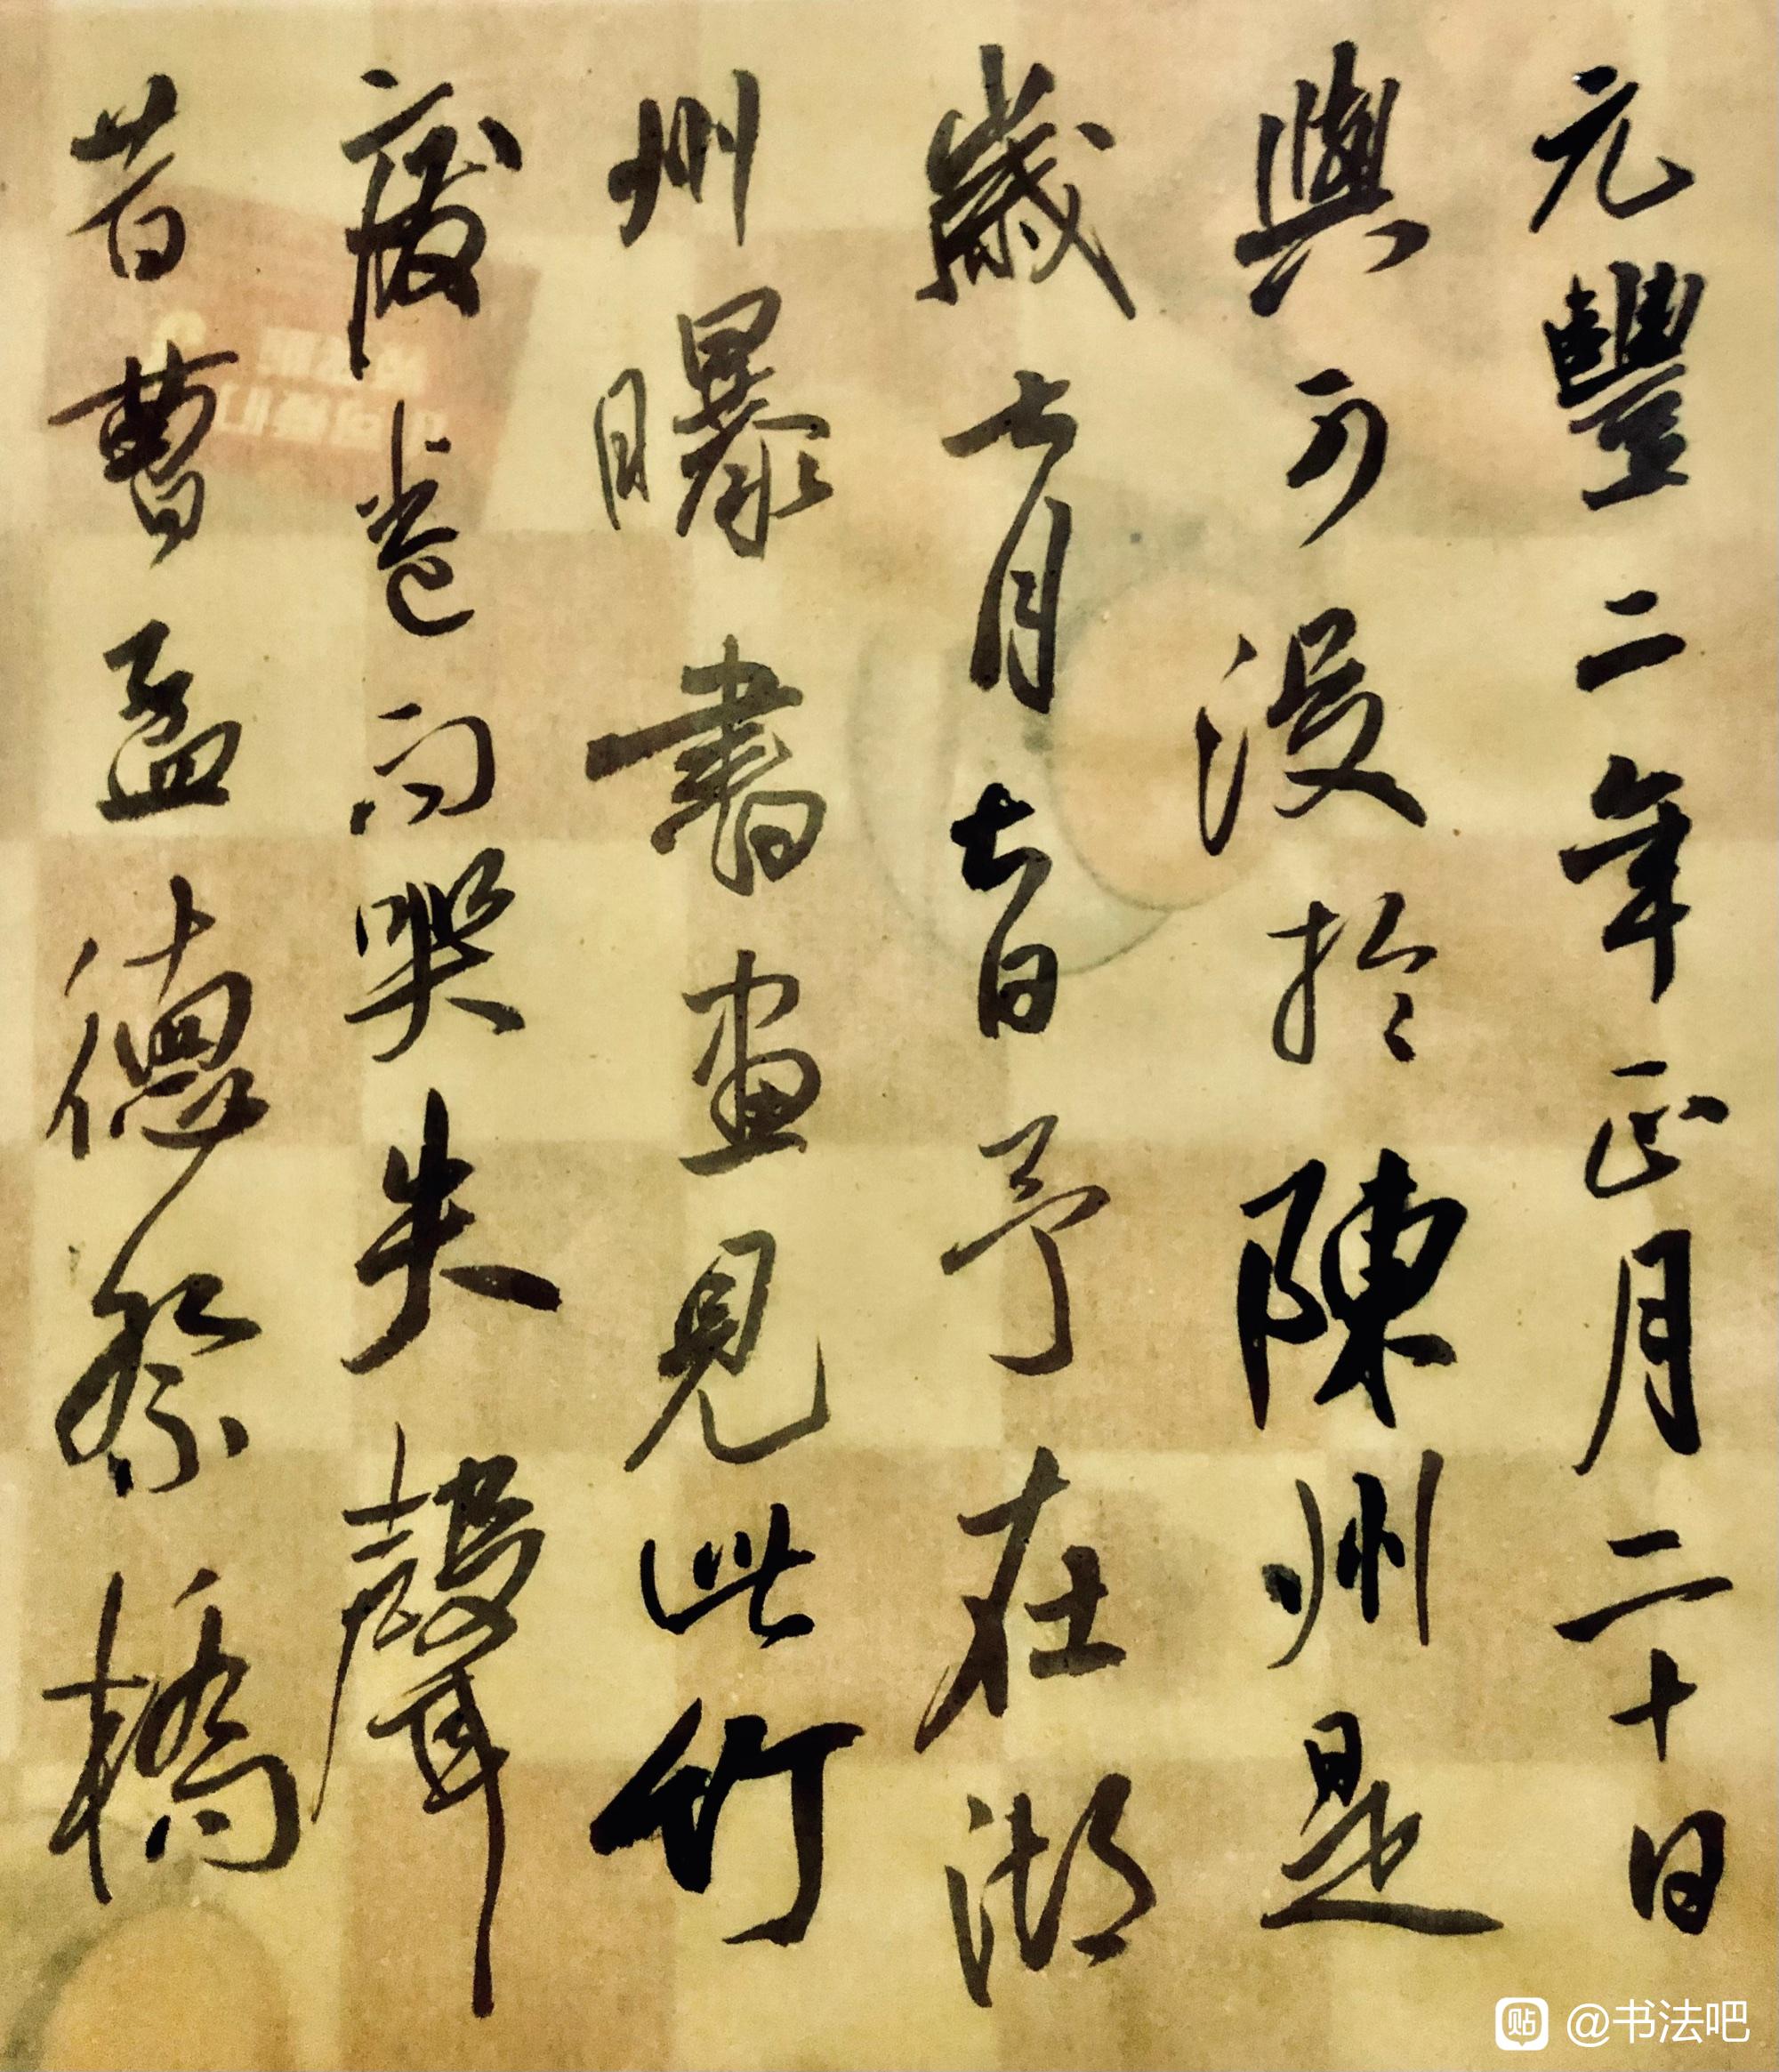 元豐二年正月二十日
與可沒於陳州是
歲七月七日予在湖
州曝書畫見此竹
廢卷而哭失聲
昔曹孟德祭橋
貼 @书法吧